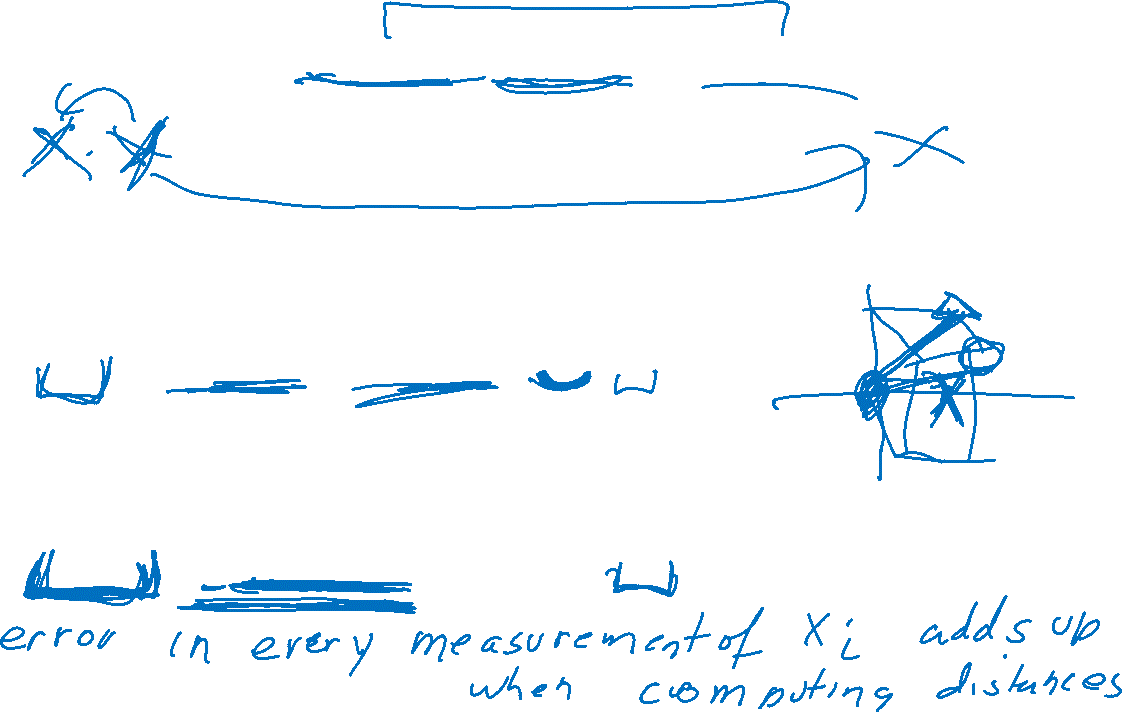 error in every measurement of Xi adds up
when computing distances